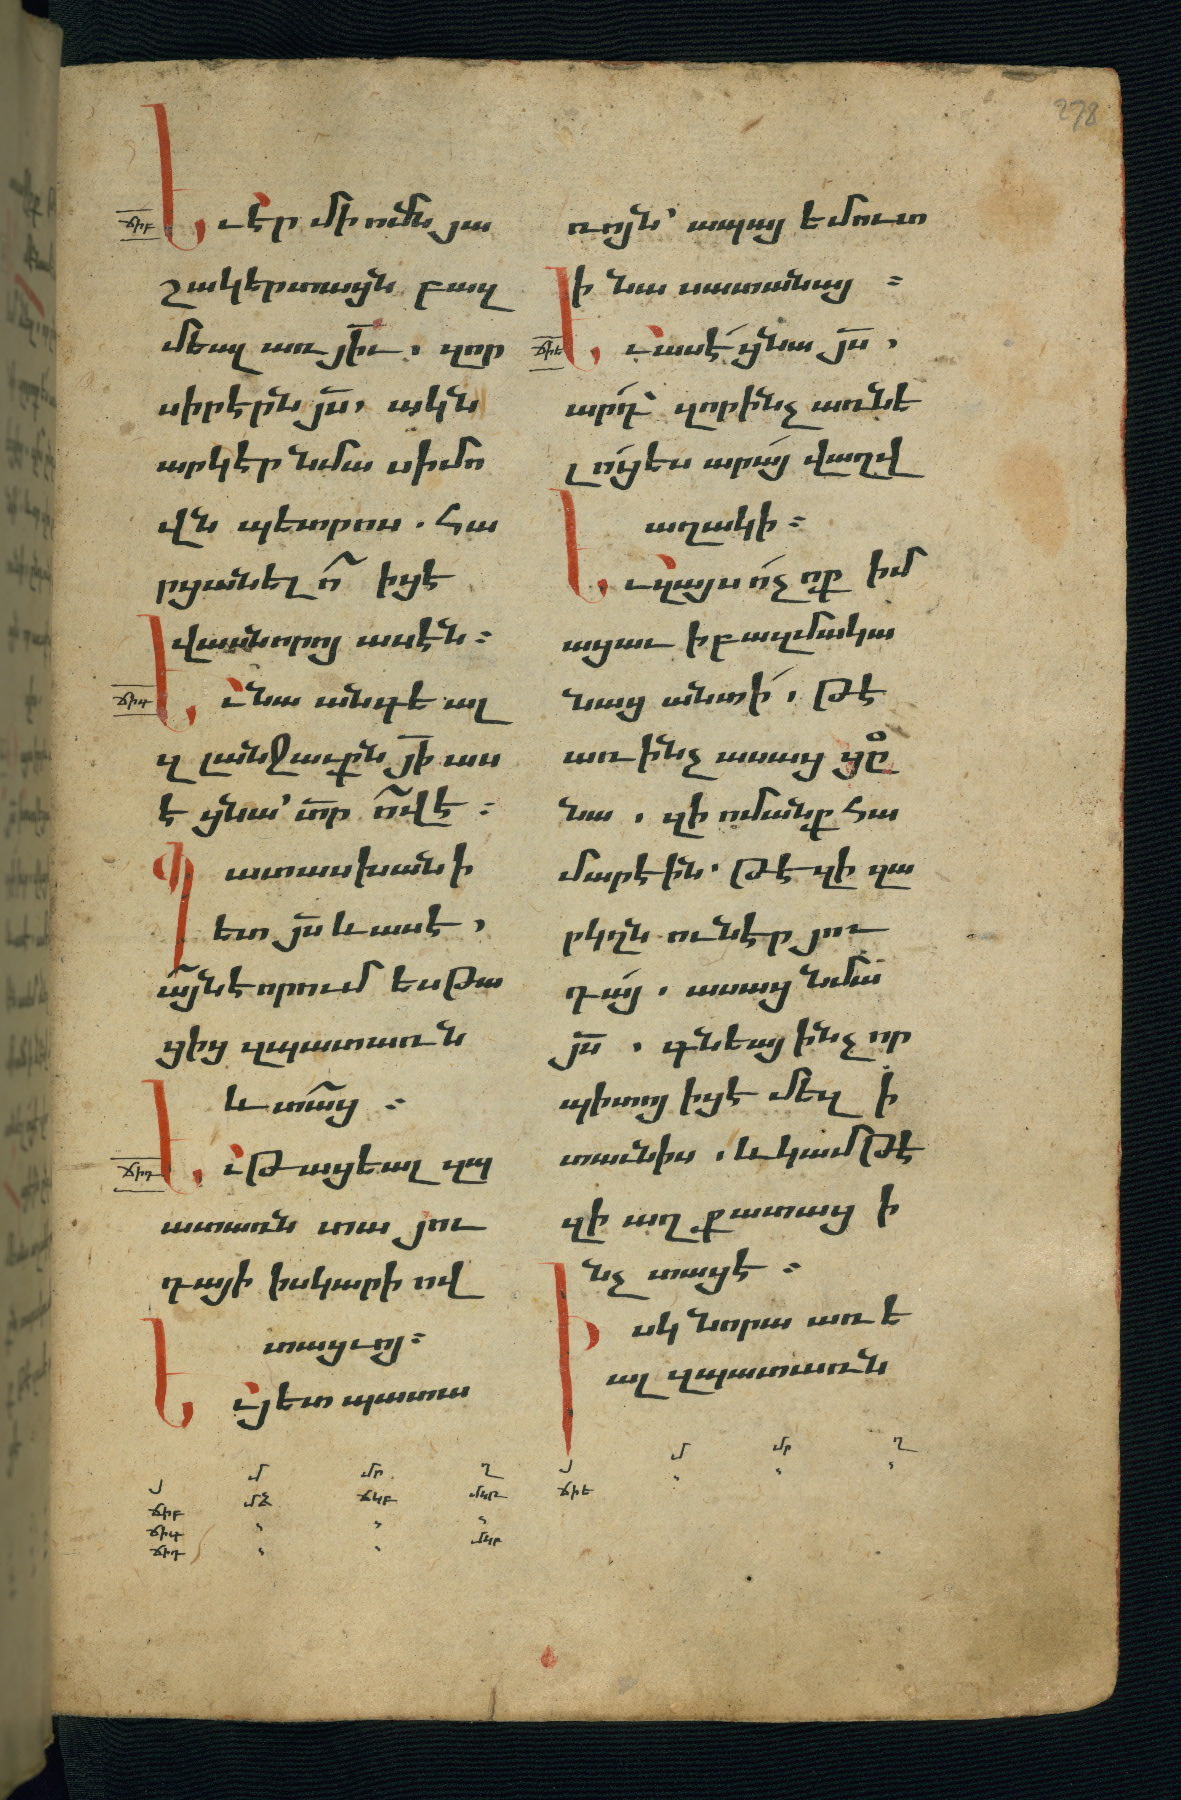 278
ճիբ
Եւ էր մի ոմն յա
շակերտացն բազ
մեալ առ յիւ. զոր
սիրէրն յս, ակն
արկէր նմա սիմո
վն պետրոս. հա
րցանել ո՞ իցէ
վասնորոյ ասէն։
ճիգ
Եւ նա անգեալ
զ լանջաւքն յի աս
է ցնա՝ տր ո՞վ է։
Պատասխանի
ետ յս և ասէ,
այն է որում ես թա
ցից զպատառն
և տաց։
ճիդ
Եւ թացեալ զպ
ատառն տա յու
դայի իսկարիովվ
տացւոյ։
Եւ յետ պատա
ռոյն՝ ապայ եմուտ
ի նա սատանայ։
ճիե
Եւ ասէ ցնա յս,
արդ՝ զորինչ առնե
լոցես արա՛ վաղվ
աղակի։
Եւ զայս ոչ ոք իմ
ացաւ ի բազմակա
նաց անտի, թէ
առ ինչ ասաց ցը
նա, զի ոմանք հա
մարէին. թէ զի գա
րկղն ունէր յու
դայ, ասաց նմա
յս, գնեայ ինչ որ
պիտոյ իցէ մեզ ի
տաւնիս, և կամ թէ
զի աղքատաց ի
նչ տացէ։
Իսկ նորա առե
ալ զպատառն
յ մ մր ղ
ճիբ մձ ճկբ մկռ
ճիգ
ճիդ մկբ
յ մ մր ղ
ճիե